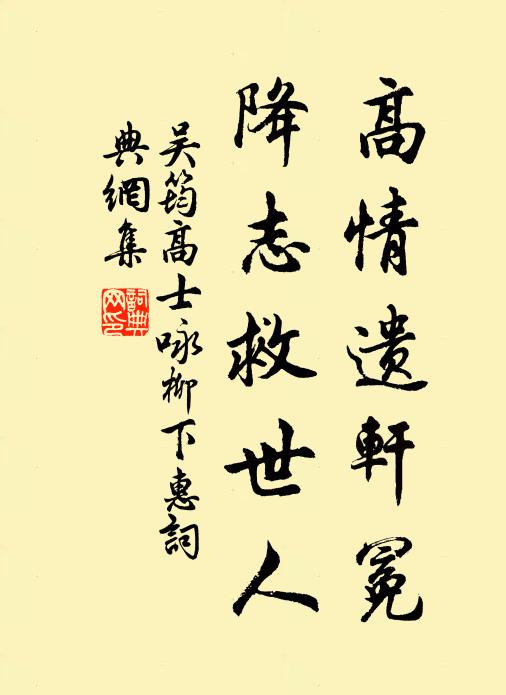 高情遺軒冕
降志救世人
吴筠高士咏柳下惠詞
典網集
詞典
网印